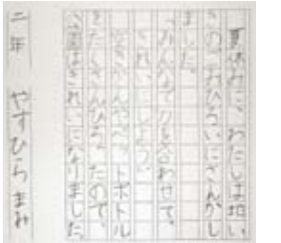 夏休みに、わたしは地い
きのごみひろいにさんかし
ました。
「みんなで力を合わせて、
きれいにしよう。」
空きかんやペットボトル
をたくさんひろったので、
公園はきれいになりました
二年 やすひらまみ